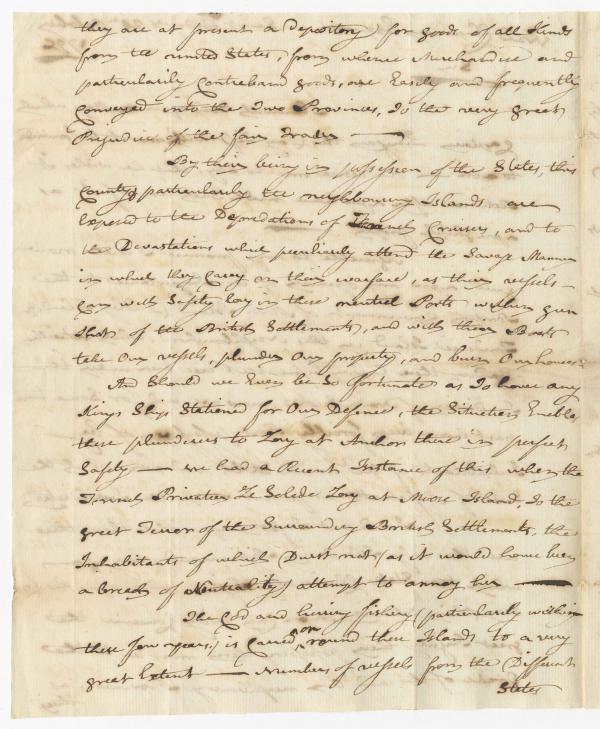 they are at present a Depository for goods of all Kinds
from the united States, from whence Merchandise and
particularly Contraband goods, are Easily and frequently
Conveyed into the Two Provinces, To the very great
Prejudice of the fair Trader —
By their being in possession of the States, this
County & particularly the neighbouring Islands are
Exposed to the Depredations of French Cruisers, and to
the Devastations which peculiarly attend the Savage Manner
in which they Carry on their warfare, as their vessels
can with Safety Lay in these neutral Ports within gun
Shot of the British Settlements, and with their Boats
take Our vessels, plunder Our property, and burn Our houses
And Should we Ever be So fortunate as To have any
Kings Ships Stationed for Our Defence, the Situation Enable
these plunderers to Lay at Anchor there in perfect
Safety — we had a Recent Instance of this when the
French Privateer Le Solede Lay at Moose Island, To the
great Terror of the Surrounding British Settlements, the
Inhabitants of which Durst not (as it would have been
a breach of Neutrality) attempt to annoy her —
The Cod and herring fishery (particularly within
these few years,) is Carried on round these Islands to a very
great Extent — Numbers of vessels from the Different
States